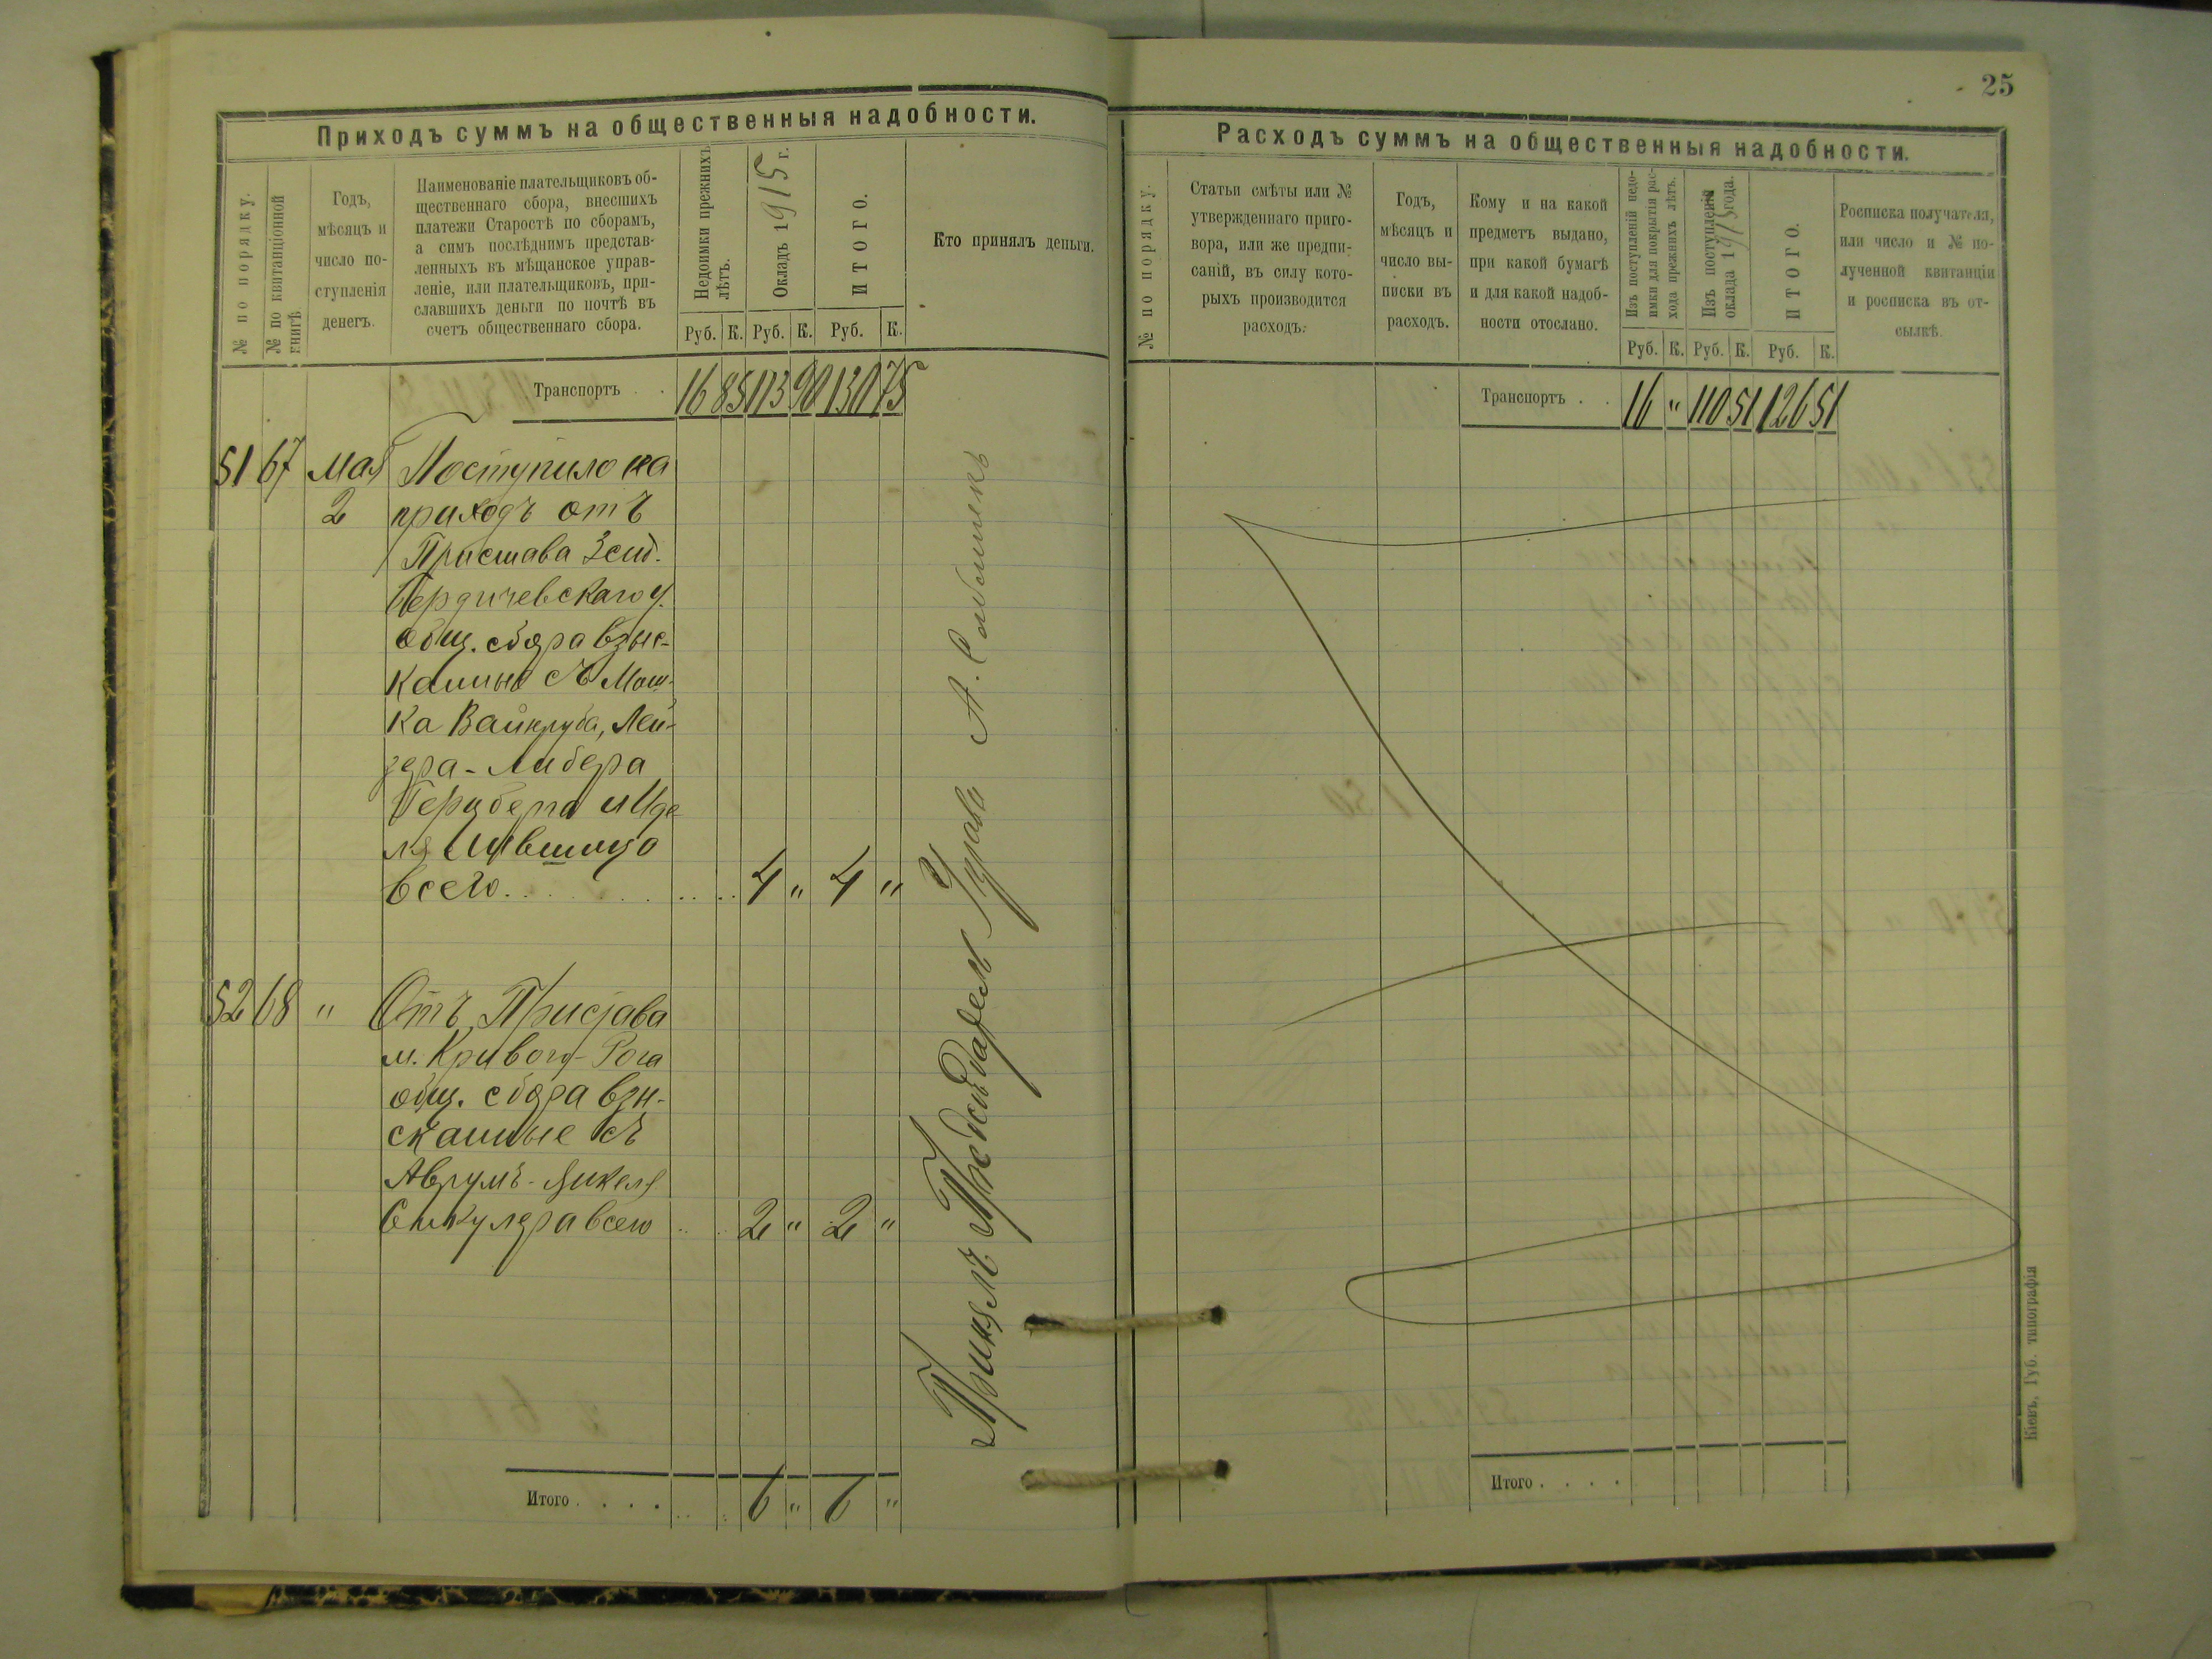 25
Приходъ суммъ на общественныя надобности.
№ по порядку.
№ по квитанціонной
книгѣ.
Годъ,
мѣсяцъ и
число по-
ступленія
денегъ.
Наименованіе плательщиковъ об-
щественнаго сбора, внесшихъ
платежи Старостѣ по сборамъ,
а симъ послѣднимъ представ-
ленныхъ въ мѣщанское управ-
леніе, или плательщиковъ, при-
славшихъ деньги по почтѣ въ
счетъ общественнаго сбора.
Недоимки прежнихъ
лѣтъ.
Окладъ 1915 г.
ИТОГО.
Кто принялъ деньги.
Руб. К. Руб. К. Руб. К.
Транспортъ . . 16 85 113 90 130 75
51 67 Мая Поступило на
2 приходъ отъ
Пристава 3 ст.
Бердичевскаго у.
общ. сбора взыс-
канные съ Мош-
ка Вайнруба, Лей-
зера-Либера
Герцберга и Иде-
ля
всего. . . . . . . . . . 4 " 4 "
52 68 " Отъ Пристава
м. Кривого-Рога
общ. сбора взы-
сканные съ
Аврумъ-
всего . . . 2 " 2 "
Итого . . . . 6 " 6 "
Принялъ
Расходъ суммъ на общественныя надобности.
№ по порядку.
Статьи смѣты или №
утвержденнаго приго-
вора, или же предпи-
саній, въ силу кото-
рыхъ производится
расходъ.
Годъ,
мѣсяцъ и
число вы-
писки въ
расходъ.
Кому и на какой
предметъ выдано,
при какой бумагѣ
и для какой надоб-
ности отослано.
Изъ поступленій недо-
имки для покрытія рас-
хода прежнихъ лѣтъ.
Изъ поступленій
оклада 1915 года.
ИТОГО.
Росписка получателя,
или число и № по-
лученной квитанціи
и росписка въ от-
сылкѣ.
Руб. К. Руб. К. Руб. К.
Транспортъ . . 16 " 110 51 126 51
Итого . . . .
Кіевъ, Губ. типографія